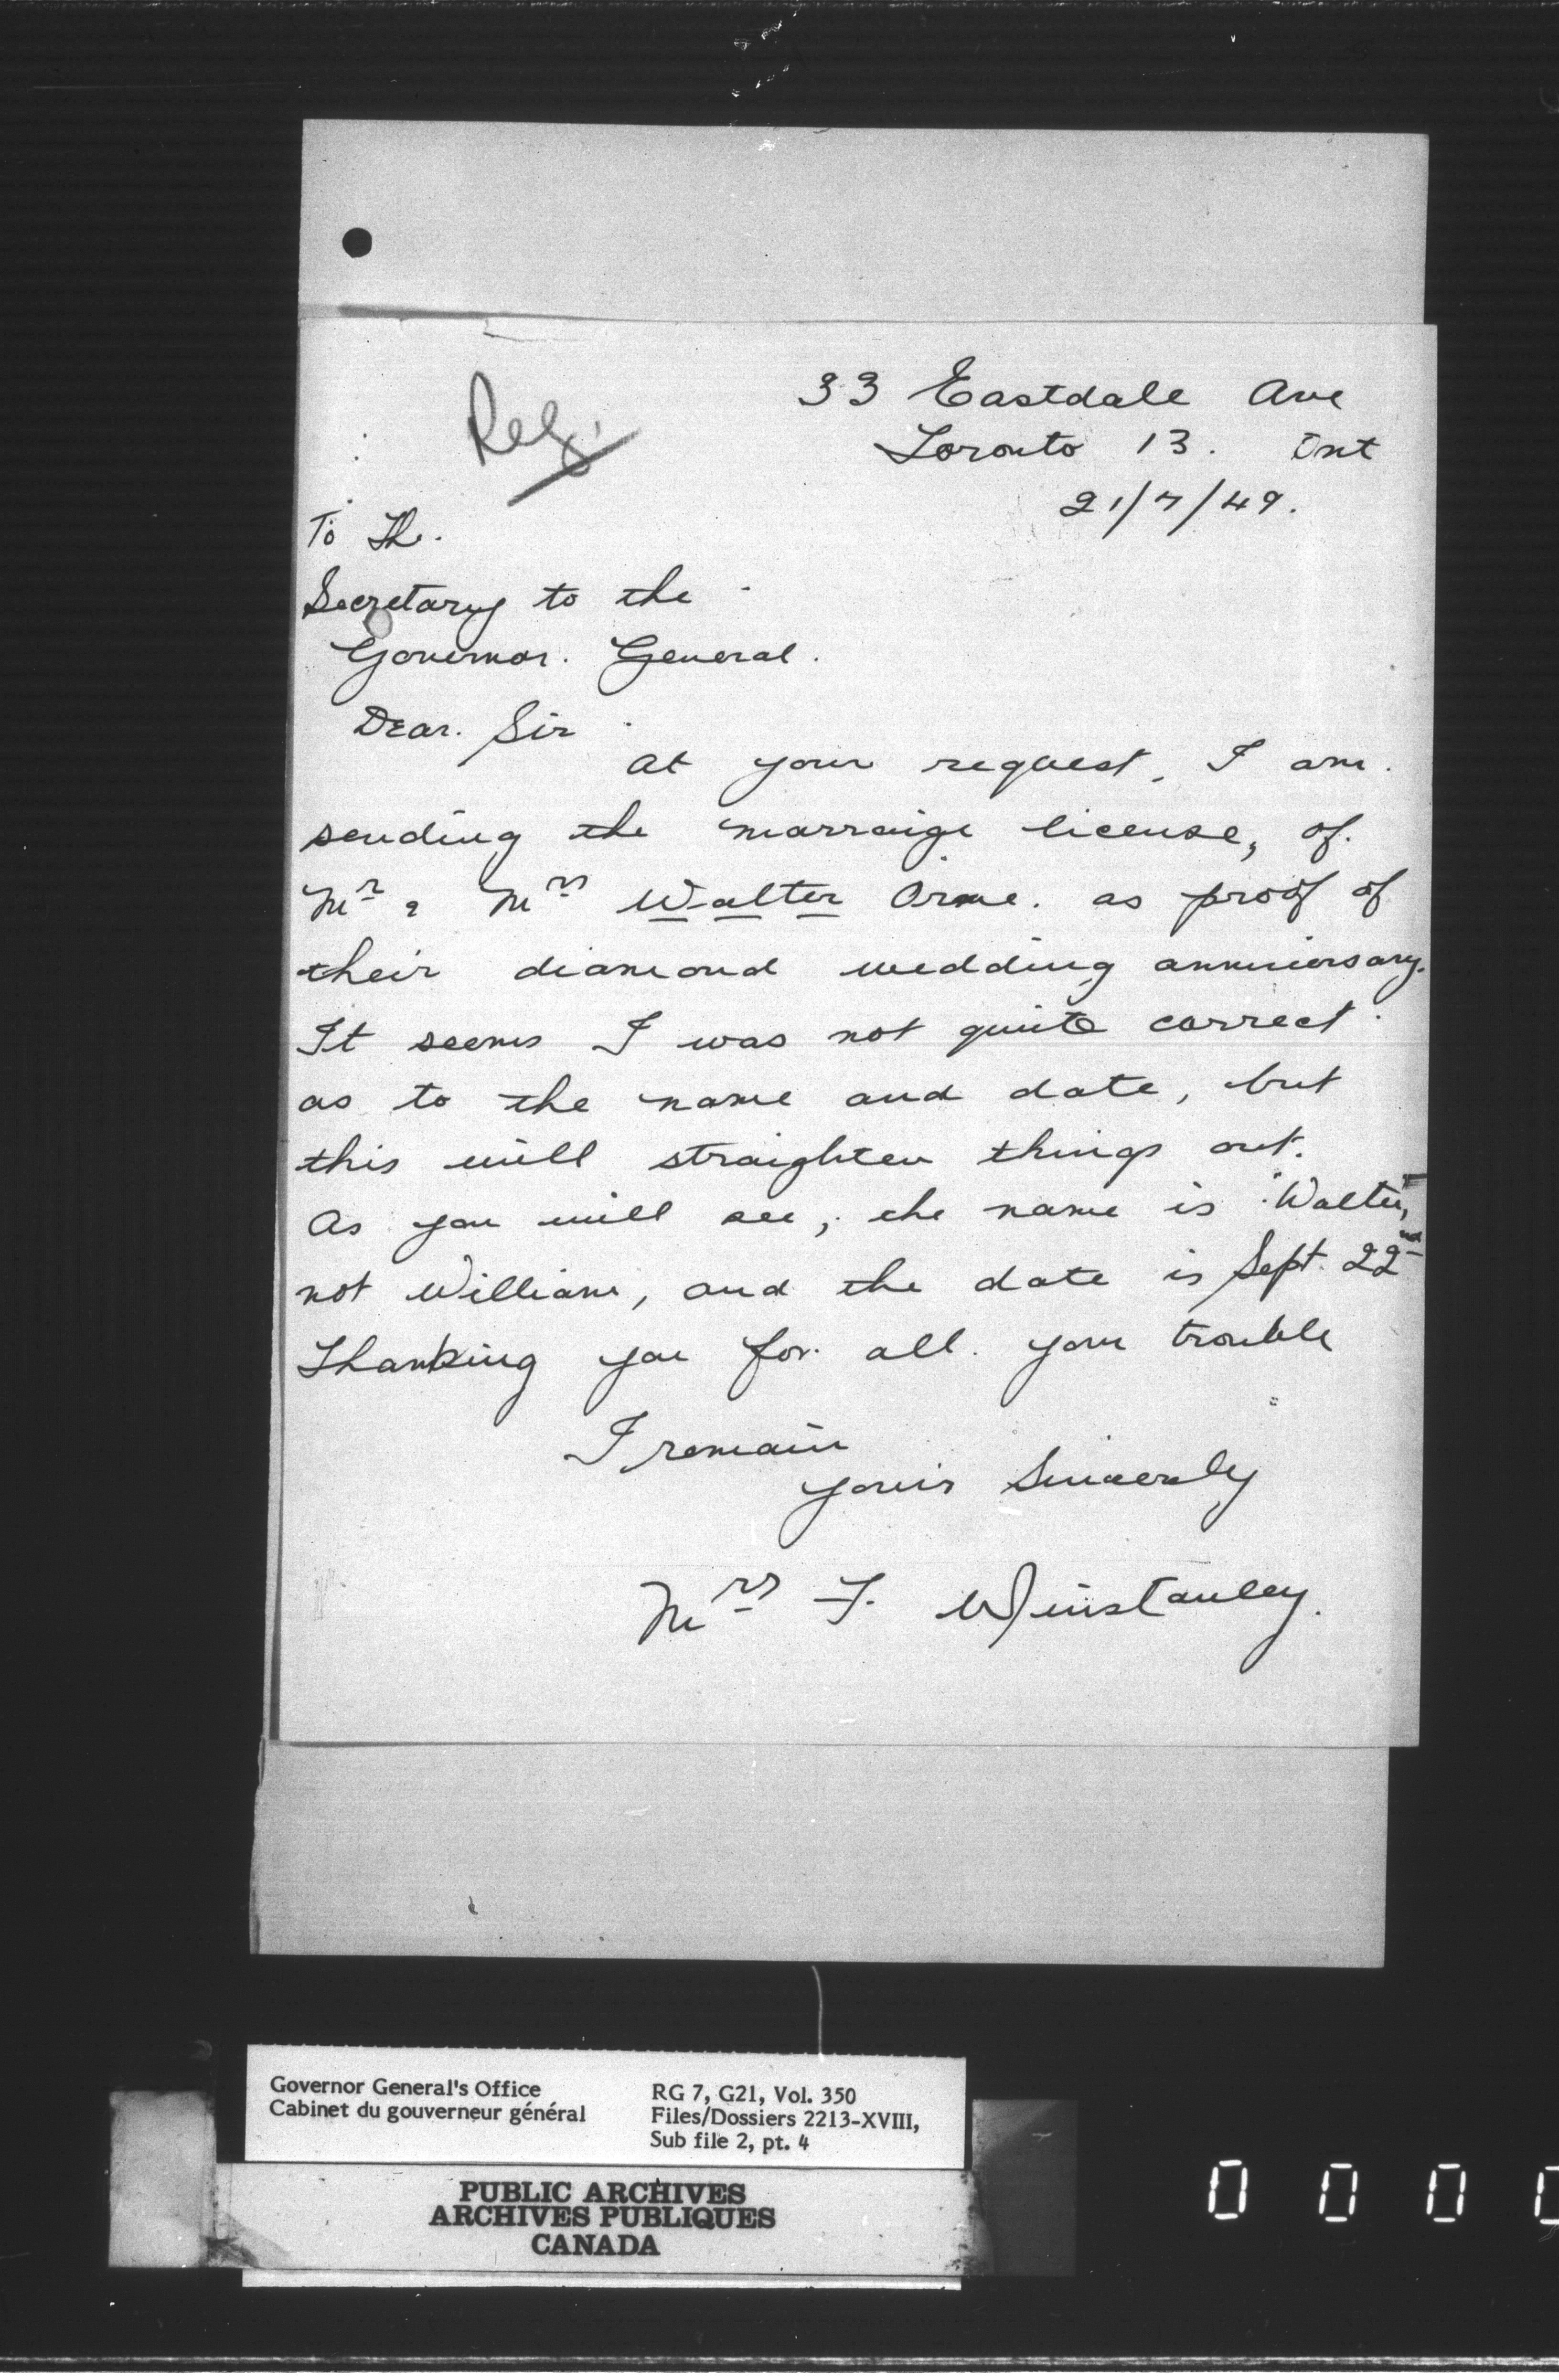 33 Eastdale Ave
Reg.
Toronto 13. Ont
21/7/49.
To The.
Secretary to the
Governor. General.
Dear. Sir
at your request, I am.
sending the marraige license, of.
Mr & Mrs Walter Orme. as proof of
their diamond wedding anniversary.
It seems I was not quite correct
as to the name and date, but
this will straighten things out.
As you will see, the name is Walter,
not William, and the date is Sept. 22nd
Thanking you for. all. your trouble
I remain
yours Sincerely
Mrs F. Winstanley.
Governor General's Office
Cabinet du gouverneur général
RG 7, G21, Vol. 350
Files/Dossiers 2213-XVIII,
Sub file 2, pt. 4
PUBLIC ARCHIVES
ARCHIVES PUBLIQUES
CANADA
0 0 0 0